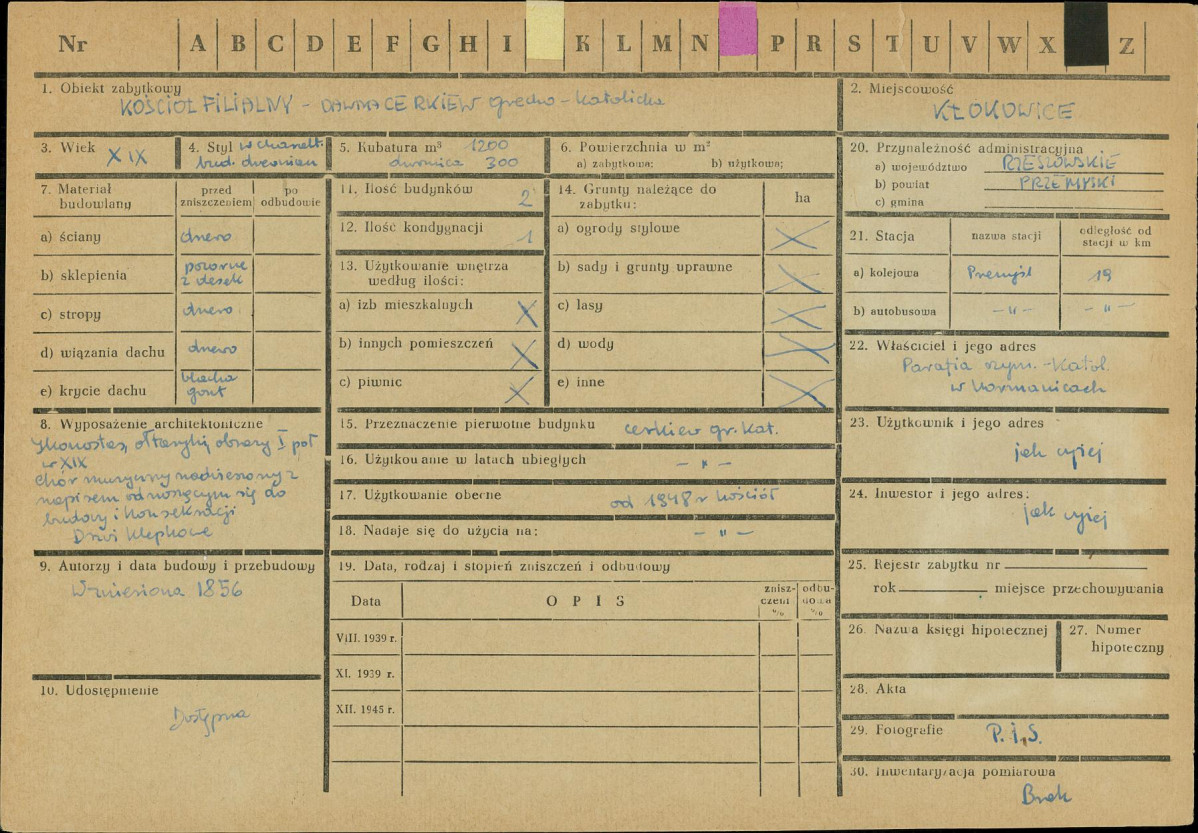 Nr A B C D E F G H I K L M N P R S T U V W X Z
1. Obiekt zabytkowy
KOŚCIOŁ FILIALNY - DAWNA CERKIEW grecko-katolicka
2. Miejscowość
KŁOKOWICE
3. Wiek XIX
4. Styl w charakt.
bud. drewnian
5. Kubatura m³ 1200
dzwonnica 300
6. Powierzchnia w m²
a) zabytkowa: b) użytkowa:
7. Materiał budowlany
przed zniszczeniem
po odbudowie
a) ściany drewno
b) sklepienia pozorne
z desek
c) stropy drewno
d) wiązania dachu drewno
e) krycie dachu blacha
gont
8. Wyposażenie architektoniczne
Ikonostas, ołtarzyki, obrazy I poł
w XIX
chór muzyczny nadwieszony z
napisem odnoszącym się do
budowy i konsekracji
Drzwi klepkowe
9. Autorzy i data budowy i przebudowy
Wzniesiona 1856
10. Udostępnienie
Dostępna
11. Ilość budynków 2
12. Ilość kondygnacji 1
13. Użytkowanie wnętrza
według ilości:
a) izb mieszkalnych X
b) innych pomieszczeń X
c) piwnic X
14. Grunty należące do
zabytku: ha
a) ogrody stylowe X
b) sady i grunty uprawne X
c) lasy X
d) wody X
e) inne X
15. Przeznaczenie pierwotne budynku cerkiew gr. kat.
16. Użytkowanie w latach ubiegłych - " -
17. Użytkowanie obecne od 1948 r kościół
18. Nadaje się do użycia na: - " -
19. Data, rodzaj i stopień zniszczeń i odbudowy
Data OPIS zniszczeń % odbudowa %
VIII. 1939 r.
XI. 1939 r.
XII. 1945 r.
20. Przynależność administracyjna
a) województwo RZESZOWSKIE
b) powiat PRZEMYSKI
c) gmina
21. Stacja nazwa stacji odległość od
stacji w km
a) kolejowa Przemyśl 19
b) autobusowa - " - - " -
22. Właściciel i jego adres
Parafia rzym.-katol.
w Kormanicach
23. Użytkownik i jego adres
jak wyżej
24. Inwestor i jego adres:
jak wyżej
25. Rejestr zabytku nr
rok miejsce przechowywania
26. Nazwa księgi hipotecznej
27. Numer
hipoteczny
28. Akta
29. Fotografie P.I.S.
30. Inwentaryzacja pomiarowa
Brak